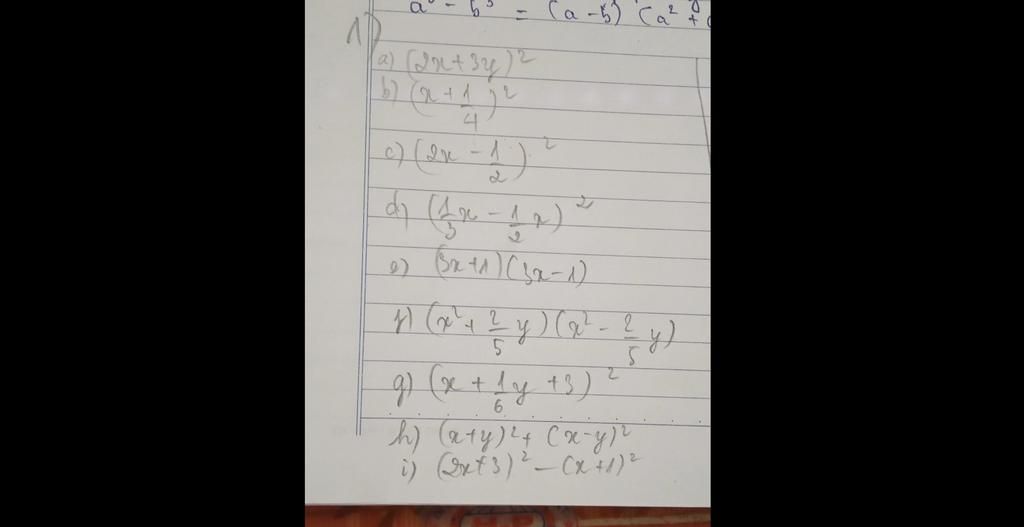 a³ - b³ = (a - b) (a² +
1)
a) (2x + 3y)²
b) (x + 1/4)²
c) (2x - 1/2)²
d) (1/3x - 1/2x)²
e) (3x+1)(3x-1)
f) (x² + 2/5 y)(x² - 2/5 y)
g) (x + 1/6 y + 3)²
h) (x+y)² + (x-y)²
i) (2x+3)² - (x+1)²